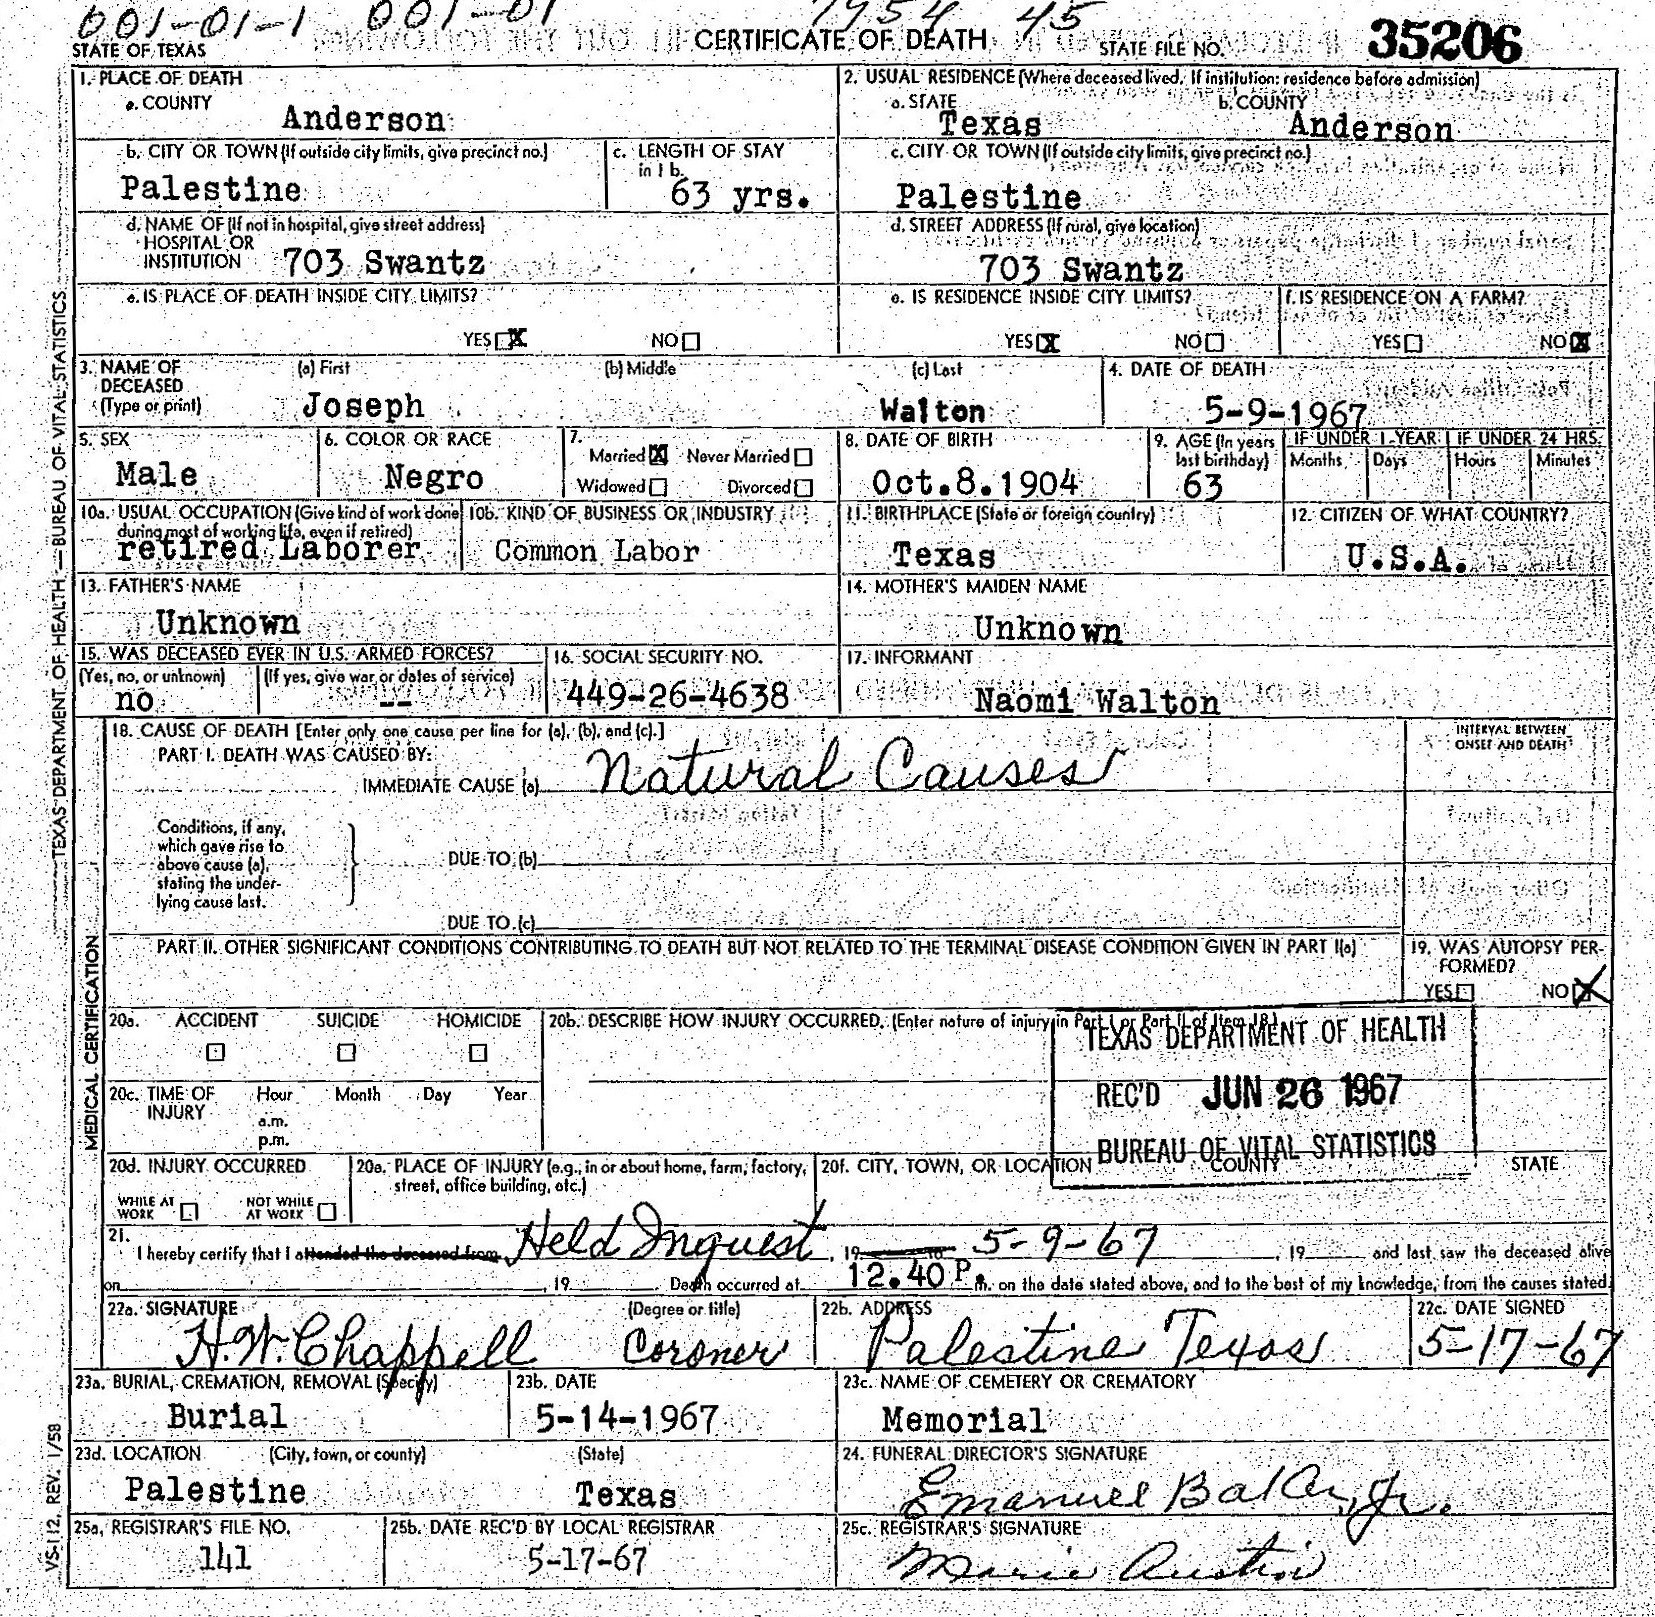 001-01-1 001-01 7954 45
STATE OF TEXAS CERTIFICATE OF DEATH STATE FILE NO. 35206
1. PLACE OF DEATH
a. COUNTY
Anderson
2. USUAL RESIDENCE (Where deceased lived. If institution: residence before admission)
a. STATE b. COUNTY
Texas Anderson
b. CITY OR TOWN (If outside city limits, give precinct no.)
Palestine
c. LENGTH OF STAY
in 1 b.
63 yrs.
c. CITY OR TOWN (If outside city limits, give precinct no.)
Palestine
d. NAME OF (If not in hospital, give street address)
HOSPITAL OR
INSTITUTION 703 Swantz
d. STREET ADDRESS (If rural, give location)
703 Swantz
e. IS PLACE OF DEATH INSIDE CITY LIMITS?
YES X NO
e. IS RESIDENCE INSIDE CITY LIMITS?
YES X NO
f. IS RESIDENCE ON A FARM?
YES NO X
3. NAME OF (a) First (b) Middle (c) Last
DECEASED
(Type or print) Joseph Walton
4. DATE OF DEATH
5-9-1967
5. SEX
Male
6. COLOR OR RACE
Negro
7.
Married X Never Married
Widowed Divorced
8. DATE OF BIRTH
Oct.8.1904
9. AGE (In years
last birthday)
63
IF UNDER 1 YEAR IF UNDER 24 HRS.
Months Days Hours Minutes
10a. USUAL OCCUPATION (Give kind of work done
during most of working life, even if retired)
retired Laborer
10b. KIND OF BUSINESS OR INDUSTRY
Common Labor
11. BIRTHPLACE (State or foreign country)
Texas
12. CITIZEN OF WHAT COUNTRY?
U.S.A.
13. FATHER'S NAME
Unknown
14. MOTHER'S MAIDEN NAME
Unknown
15. WAS DECEASED EVER IN U.S. ARMED FORCES?
(Yes, no, or unknown) (If yes, give war or dates of service)
no --
16. SOCIAL SECURITY NO.
449-26-4638
17. INFORMANT
Naomi Walton
18. CAUSE OF DEATH [Enter only one cause per line for (a), (b), and (c).]
PART I. DEATH WAS CAUSED BY:
IMMEDIATE CAUSE (a) Natural Causes
INTERVAL BETWEEN
ONSET AND DEATH
Conditions, if any,
which gave rise to
above cause (a),
stating the under-
lying cause last.
DUE TO (b)
DUE TO (c)
PART II. OTHER SIGNIFICANT CONDITIONS CONTRIBUTING TO DEATH BUT NOT RELATED TO THE TERMINAL DISEASE CONDITION GIVEN IN PART I(a)
19. WAS AUTOPSY PER-
FORMED?
YES NO X
20a. ACCIDENT SUICIDE HOMICIDE
20b. DESCRIBE HOW INJURY OCCURRED. (Enter nature of injury in Part I or Part II of Item 18.)
20c. TIME OF Hour Month Day Year
INJURY a.m.
p.m.
TEXAS DEPARTMENT OF HEALTH
REC'D JUN 26 1967
BUREAU OF VITAL STATISTICS
20d. INJURY OCCURRED
WHILE AT
WORK
NOT WHILE
AT WORK
20e. PLACE OF INJURY (e.g., in or about home, farm, factory,
street, office building, etc.)
20f. CITY, TOWN, OR LOCATION COUNTY STATE
21.
I hereby certify that I attended the deceased from Held Inquest, 19 to 5-9-67, 19 and last saw the deceased alive
on , 19 . Death occurred at 12.40 P. m. on the date stated above, and to the best of my knowledge, from the causes stated.
22a. SIGNATURE (Degree or title)
H.W. Chappell Coroner
22b. ADDRESS
Palestine Texas
22c. DATE SIGNED
5-17-67
23a. BURIAL, CREMATION, REMOVAL (Specify)
Burial
23b. DATE
5-14-1967
23c. NAME OF CEMETERY OR CREMATORY
Memorial
23d. LOCATION (City, town, or county) (State)
Palestine Texas
24. FUNERAL DIRECTOR'S SIGNATURE
Emanuel Baker, Jr.
25a. REGISTRAR'S FILE NO.
141
25b. DATE REC'D BY LOCAL REGISTRAR
5-17-67
25c. REGISTRAR'S SIGNATURE
Marie Austin
TEXAS DEPARTMENT OF HEALTH — BUREAU OF VITAL STATISTICS
MEDICAL CERTIFICATION
VS-112. REV. 1/58